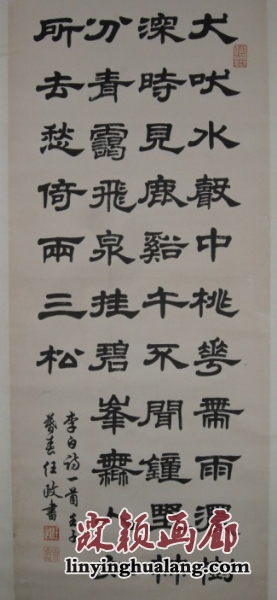 犬吠水聲中桃花帶雨濃樹
深時見鹿谿午不聞鐘野竹
分青靄飛泉挂碧峯無人知
所去愁倚兩三松
李白詩一首
暮春任政書
霖颖画廊
www.linyinghualang.com